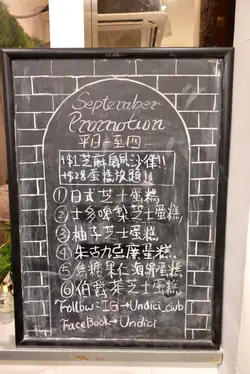 September
Promotion
平日一至四
+$1芝麻扇風沙律!!
+$28蛋糕放題!!
①日式芝士蛋糕
②士多啤梨芝士蛋糕
③柚子芝士蛋糕
④朱古力豆腐蛋糕
⑤無糖果仁海綿蛋糕
⑥伯爵茶芝士蛋糕
Follow: IG→Undici_cwb
FaceBook→Undici